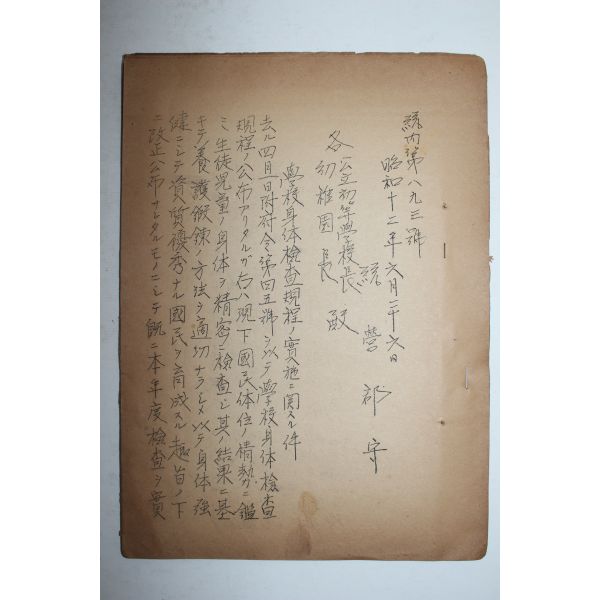 統內第八九三號
昭和十二年六月二十六日
統營郡守
各公立初等學校長
幼稚園長 殿
學校身体檢查規程ノ實施ニ関スル件
去ル四月一日附府令第四五號ヲ以テ學校身体檢查
規程ノ公布アリタルガ右ハ現下國民体位ノ情勢ニ鑑
ミ生徒児童ノ身体ヲ精密ニ檢查シ其ノ結果ニ基
キテ養護鍛錬ノ方法ヲ適切ナラシメ以テ身体強
健ニシテ資質優秀ナル國民ヲ育成スル趣旨ノ下
ニ改正公布サレタルモノニシテ既ニ本年度檢查ヲ實